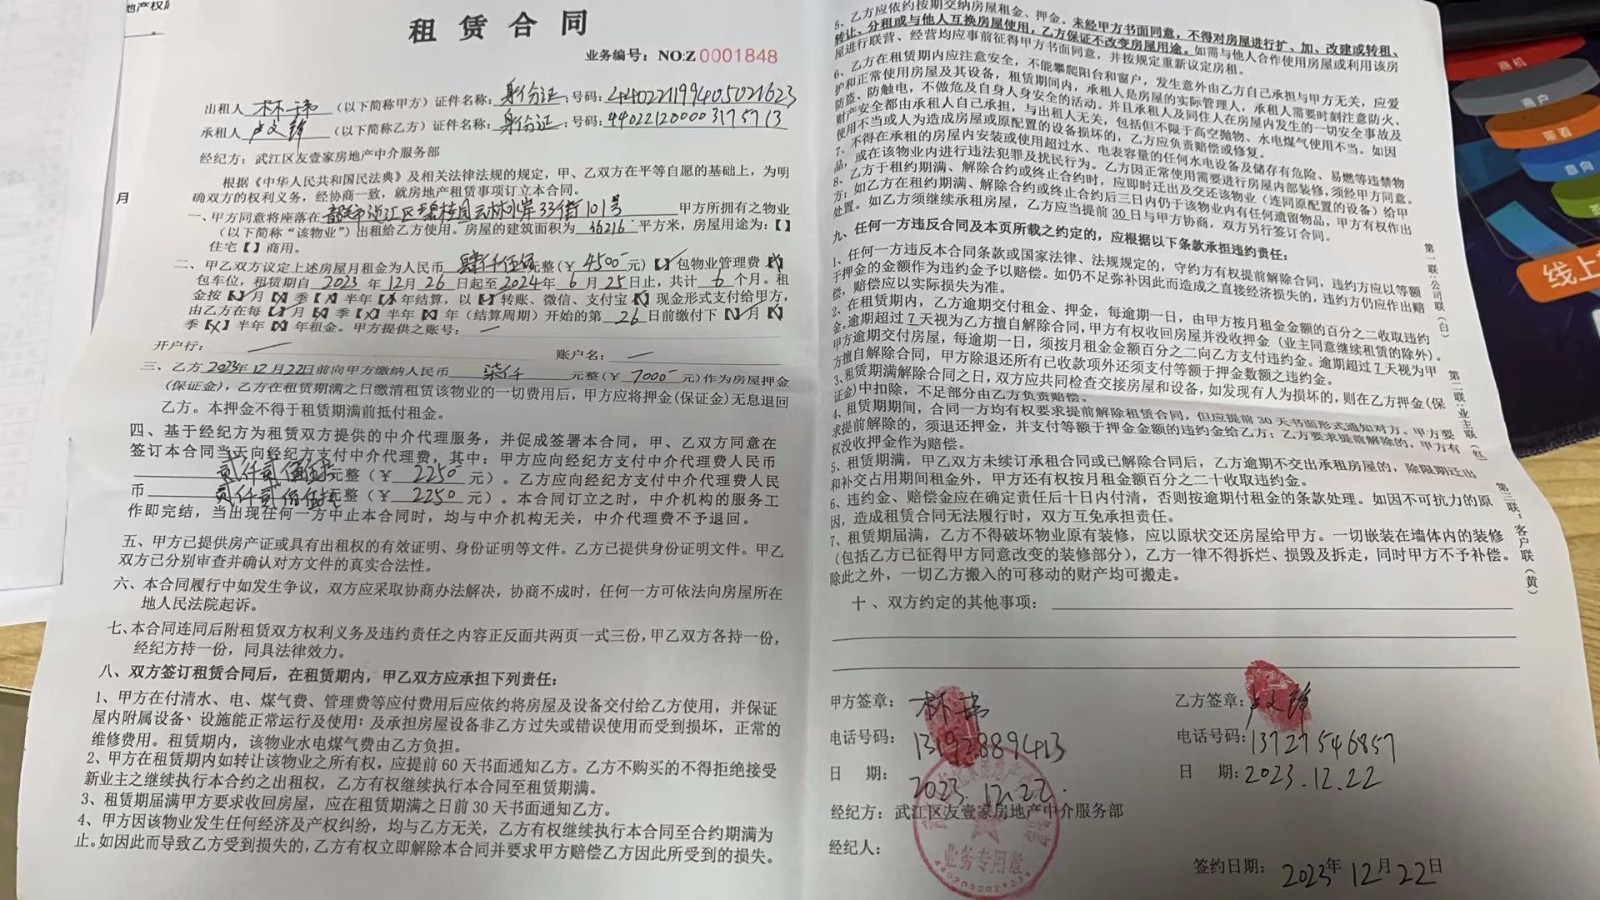 租赁合同
业务编号：NO:Z 0001848
出租人 林 （以下简称甲方）证件名称：身份证；号码：440221199405021623
承租人 卢文锋 （以下简称乙方）证件名称：身份证；号码：440221200003175713
经纪方：武江区友壹家房地产中介服务部
根据《中华人民共和国民法典》及相关法律法规的规定，甲、乙双方在平等自愿的基础上，为明
确双方的权利义务，经协商一致，就房地产租赁事项订立本合同。
一、甲方同意将座落在 韶关市浈江区碧桂园 33街101号 甲方所拥有之物业
（以下简称“该物业”）出租给乙方使用。房屋的建筑面积为 平方米，房屋用途为：【】
住宅【】商用。
二、甲乙双方议定上述房屋月租金为人民币 肆仟伍佰 元整（￥ 4500 元）【】包物业管理费【】
包车位，租赁期自 2023 年 12 月 26 日起至 2024 年 6 月 25 日止，共计 6 个月。租
金按【】月【】季【】半年【】年结算，以【】转账、微信、支付宝【】现金形式支付给甲方，
由乙方在每【】月【】季【】半年【】年（结算周期）开始的第 26 日前缴付下【】月【】
季【】半年【】年租金。甲方提供之账号：
开户行： 账户名：
三、乙方 2023年12月22日 前向甲方缴纳人民币 柒仟 元整（￥ 7000 元）作为房屋押金
（保证金），乙方在租赁期满之日缴清租赁该物业的一切费用后，甲方应将押金（保证金）无息退回
乙方。本押金不得于租赁期满前抵付租金。
四、基于经纪方为租赁双方提供的中介代理服务，并促成签署本合同，甲、乙双方同意在
签订本合同当天向经纪方支付中介代理费，其中：甲方应向经纪方支付中介代理费人民币
贰仟贰佰伍拾 元整（￥ 2250 元）。乙方应向经纪方支付中介代理费人民
币 贰仟贰佰伍拾 元整（￥ 2250 元）。本合同订立之时，中介机构的服务工
作即完结，当出现任何一方中止本合同时，均与中介机构无关，中介代理费不予退回。
五、甲方已提供房产证或具有出租权的有效证明、身份证明等文件。乙方已提供身份证明文件。甲乙
双方已分别审查并确认对方文件的真实合法性。
六、本合同履行中如发生争议，双方应采取协商办法解决，协商不成时，任何一方可依法向房屋所在
地人民法院起诉。
七、本合同连同后附租赁双方权利义务及违约责任之内容正反面共两页一式三份，甲乙双方各持一份，
经纪方持一份，同具法律效力。
八、双方签订租赁合同后，在租赁期内，甲乙双方应承担下列责任：
1、甲方在付清水、电、煤气费、管理费等应付费用后应依约将房屋及设备交付给乙方使用，并保证
屋内附属设备、设施能正常运行及使用；及承担房屋设备非乙方过失或错误使用而受到损坏，正常的
维修费用。租赁期内，该物业水电煤气费由乙方负担。
2、甲方在租赁期内如转让该物业之所有权，应提前60天书面通知乙方。乙方不购买的不得拒绝接受
新业主之继续执行本合约之出租权，乙方有权继续执行本合同至租赁期满。
3、租赁期届满甲方要求收回房屋，应在租赁期满之日前30天书面通知乙方。
4、甲方因该物业发生任何经济及产权纠纷，均与乙方无关，乙方有权继续执行本合同至合约期满为
止。如因此而导致乙方受到损失的，乙方有权立即解除本合同并要求甲方赔偿乙方因此所受到的损失。
5、乙方应依约按期交纳房屋租金、押金。未经甲方书面同意，不得对房屋进行扩、加、改建或转租、
转让、分租或与他人互换房屋使用，乙方保证不改变房屋用途。如需与他人合作使用房屋或利用该房
屋进行联营、经营均应事前征得甲方书面同意，并按规定重新议定房租。
6、乙方在租赁期内应注意安全，不能攀爬阳台和窗户，发生意外由乙方自己承担与甲方无关，应爱
护和正常使用房屋及其设备，租赁期间内，承租人是房屋的实际管理人，承租人需要时刻注意防火、
防盗、防触电，不做危及自身人身安全的活动。并且承租人及同住人在房屋内发生的一切安全事故及
财产安全都由承租人自己承担，与出租人无关，包括但不限于高空抛物、水电煤气使用不当。如因
使用不当或人为造成房屋或原配置的设备损坏的，乙方应负责赔偿或修复。
7、不得在承租的房屋内安装或使用超过水、电表容量的任何水电设备及储存有危险、易燃等违禁物
品，或在该物业内进行违法犯罪及扰民行为。乙方因正常使用需要进行房屋内部装修，须经甲方同意。
8、乙方于租约期满、解除合约或终止合约时，应即时迁出及交还该物业（连同原配置的设备）给甲
方；如乙方在租约期满、解除合约或终止合约后三日内仍于该物业内有任何遗留物品，甲方有权作出
处置。如乙方须继续承租房屋，乙方应当提前30日与甲方协商，双方另行签订合同。
九、任何一方违反合同及本页所载之约定的，应根据以下条款承担违约责任：
1、任何一方违反本合同条款或国家法律、法规规定的，守约方有权提前解除合同，违约方应以等额
于押金的金额作为违约金予以赔偿。如仍不足弥补因此而造成之直接经济损失的，违约方仍应作出赔
偿，赔偿应以实际损失为准。
2、在租赁期内，乙方逾期交付租金、押金，每逾期一日，由甲方按月租金金额的百分之二收取违约
金。逾期超过7天视为乙方擅自解除合同，甲方有权收回房屋并没收押金（业主同意继续租赁的除外）。
甲方逾期交付房屋，每逾期一日，须按月租金金额百分之二向乙方支付违约金。逾期超过7天视为甲
方擅自解除合同，甲方除退还所有已收款项外还须支付等额于押金数额之违约金。
3、租赁期满解除合同之日，双方应共同检查交接房屋和设备，如发现有人为损坏的，则在乙方押金（保
证金）中扣除，不足部分由乙方负责赔偿。
4、租赁期期间，合同一方均有权要求提前解除租赁合同，但应提前30天书面形式通知对方。甲方要
求提前解除的，须退还押金，并支付等额于押金金额的违约金给乙方；乙方要求提前解除的，甲方有
权没收押金作为赔偿。
5、租赁期满，甲乙双方未续订承租合同或已解除合同后，乙方逾期不交出承租房屋的，除限期迁出
和补交占用期间租金外，甲方还有权按月租金额百分之二十收取违约金。
6、违约金、赔偿金应在确定责任后十日内付清，否则按逾期付租金的条款处理。如因不可抗力的原
因，造成租赁合同无法履行时，双方互免承担责任。
7、租赁期届满，乙方不得破坏物业原有装修，应以原状交还房屋给甲方。一切嵌装在墙体内的装修
（包括乙方已征得甲方同意改变的装修部分），乙方一律不得拆烂、损毁及拆走，同时甲方不予补偿。
除此之外，一切乙方搬入的可移动的财产均可搬走。
十、双方约定的其他事项：
甲方签章： 林 乙方签章：卢文锋
电话号码：13192889413 电话号码：13727546857
日 期：2023.12.22. 日 期：2023.12.22
经纪方：武江区友壹家房地产中介服务部
经纪人：
业务专用章
签约日期：2023年12月22日
第一联：公司联（白）
第二联：业主联（红）
第三联：客户联（黄）
月
地产权
商机
商户
带看
意向
线上